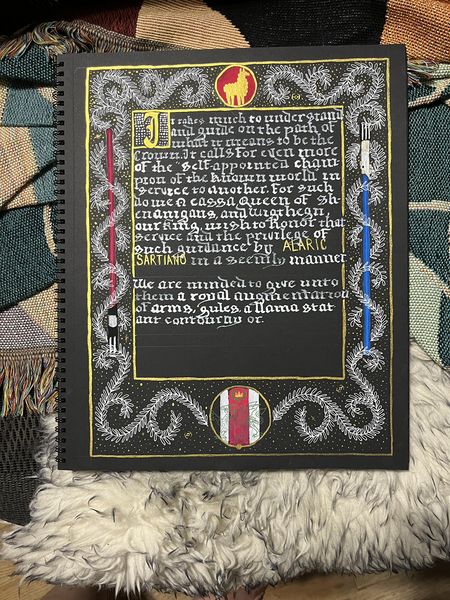 It takes much to understand
and guide on the path of
what it means to be the
Crown. It calls for even more
of the self-appointed cham
pion of the known world in
service to another. For such
do we Cassa, Queen of Sh
enanigans, and Wigthegn,
our king, wish to honor that
service and the privilege of
such guidance by ALARIC
SARTIANO in a seemly manner
We are minded to give unto
them a royal augmentation
of arms, gules, a llama stat
ant contourny or.